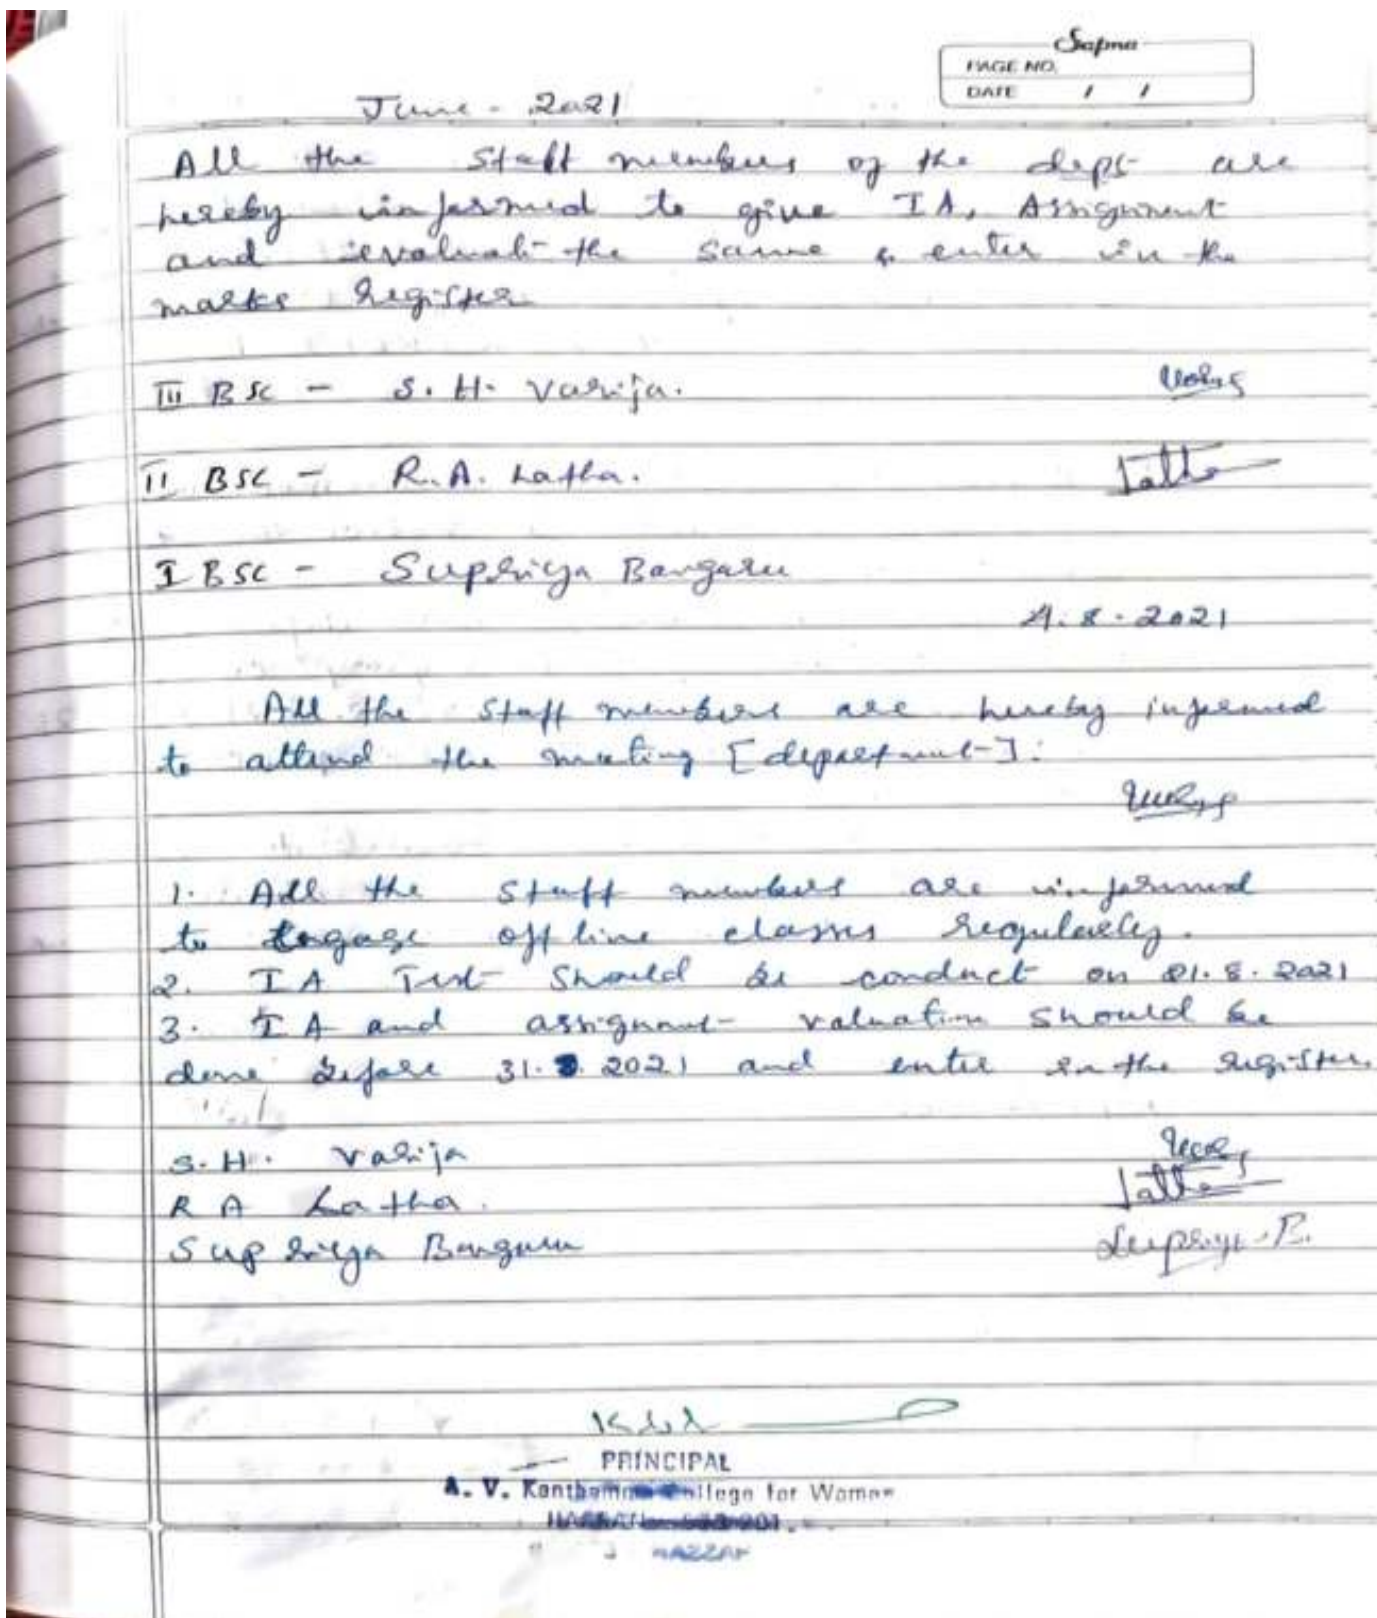 Sapna
PAGE NO.
DATE / /
June - 2021
All the staff members of the dept are
hereby informed to give IA, Assignment
and evaluate the same & enter in the
marks register
III BSc - S. H. Varija.
II BSC - R.A. Latha.
Latha
I BSC - Supriya Bangaru
4.8.2021
All the staff members are hereby informed
to attend the meeting [department].
1. All the staff members are informed
to engage offline classes regularly.
2. IA Test should be conduct on 21.8.2021
3. IA and assignment valuation should be
done before 31.8.2021 and enter in the register.
S. H. Varija
R A Latha.
Latha
Supriya Bangaru
Supriya B.
PRINCIPAL
A. V. Kanthamma College for Women
HASSAN - 573 201.